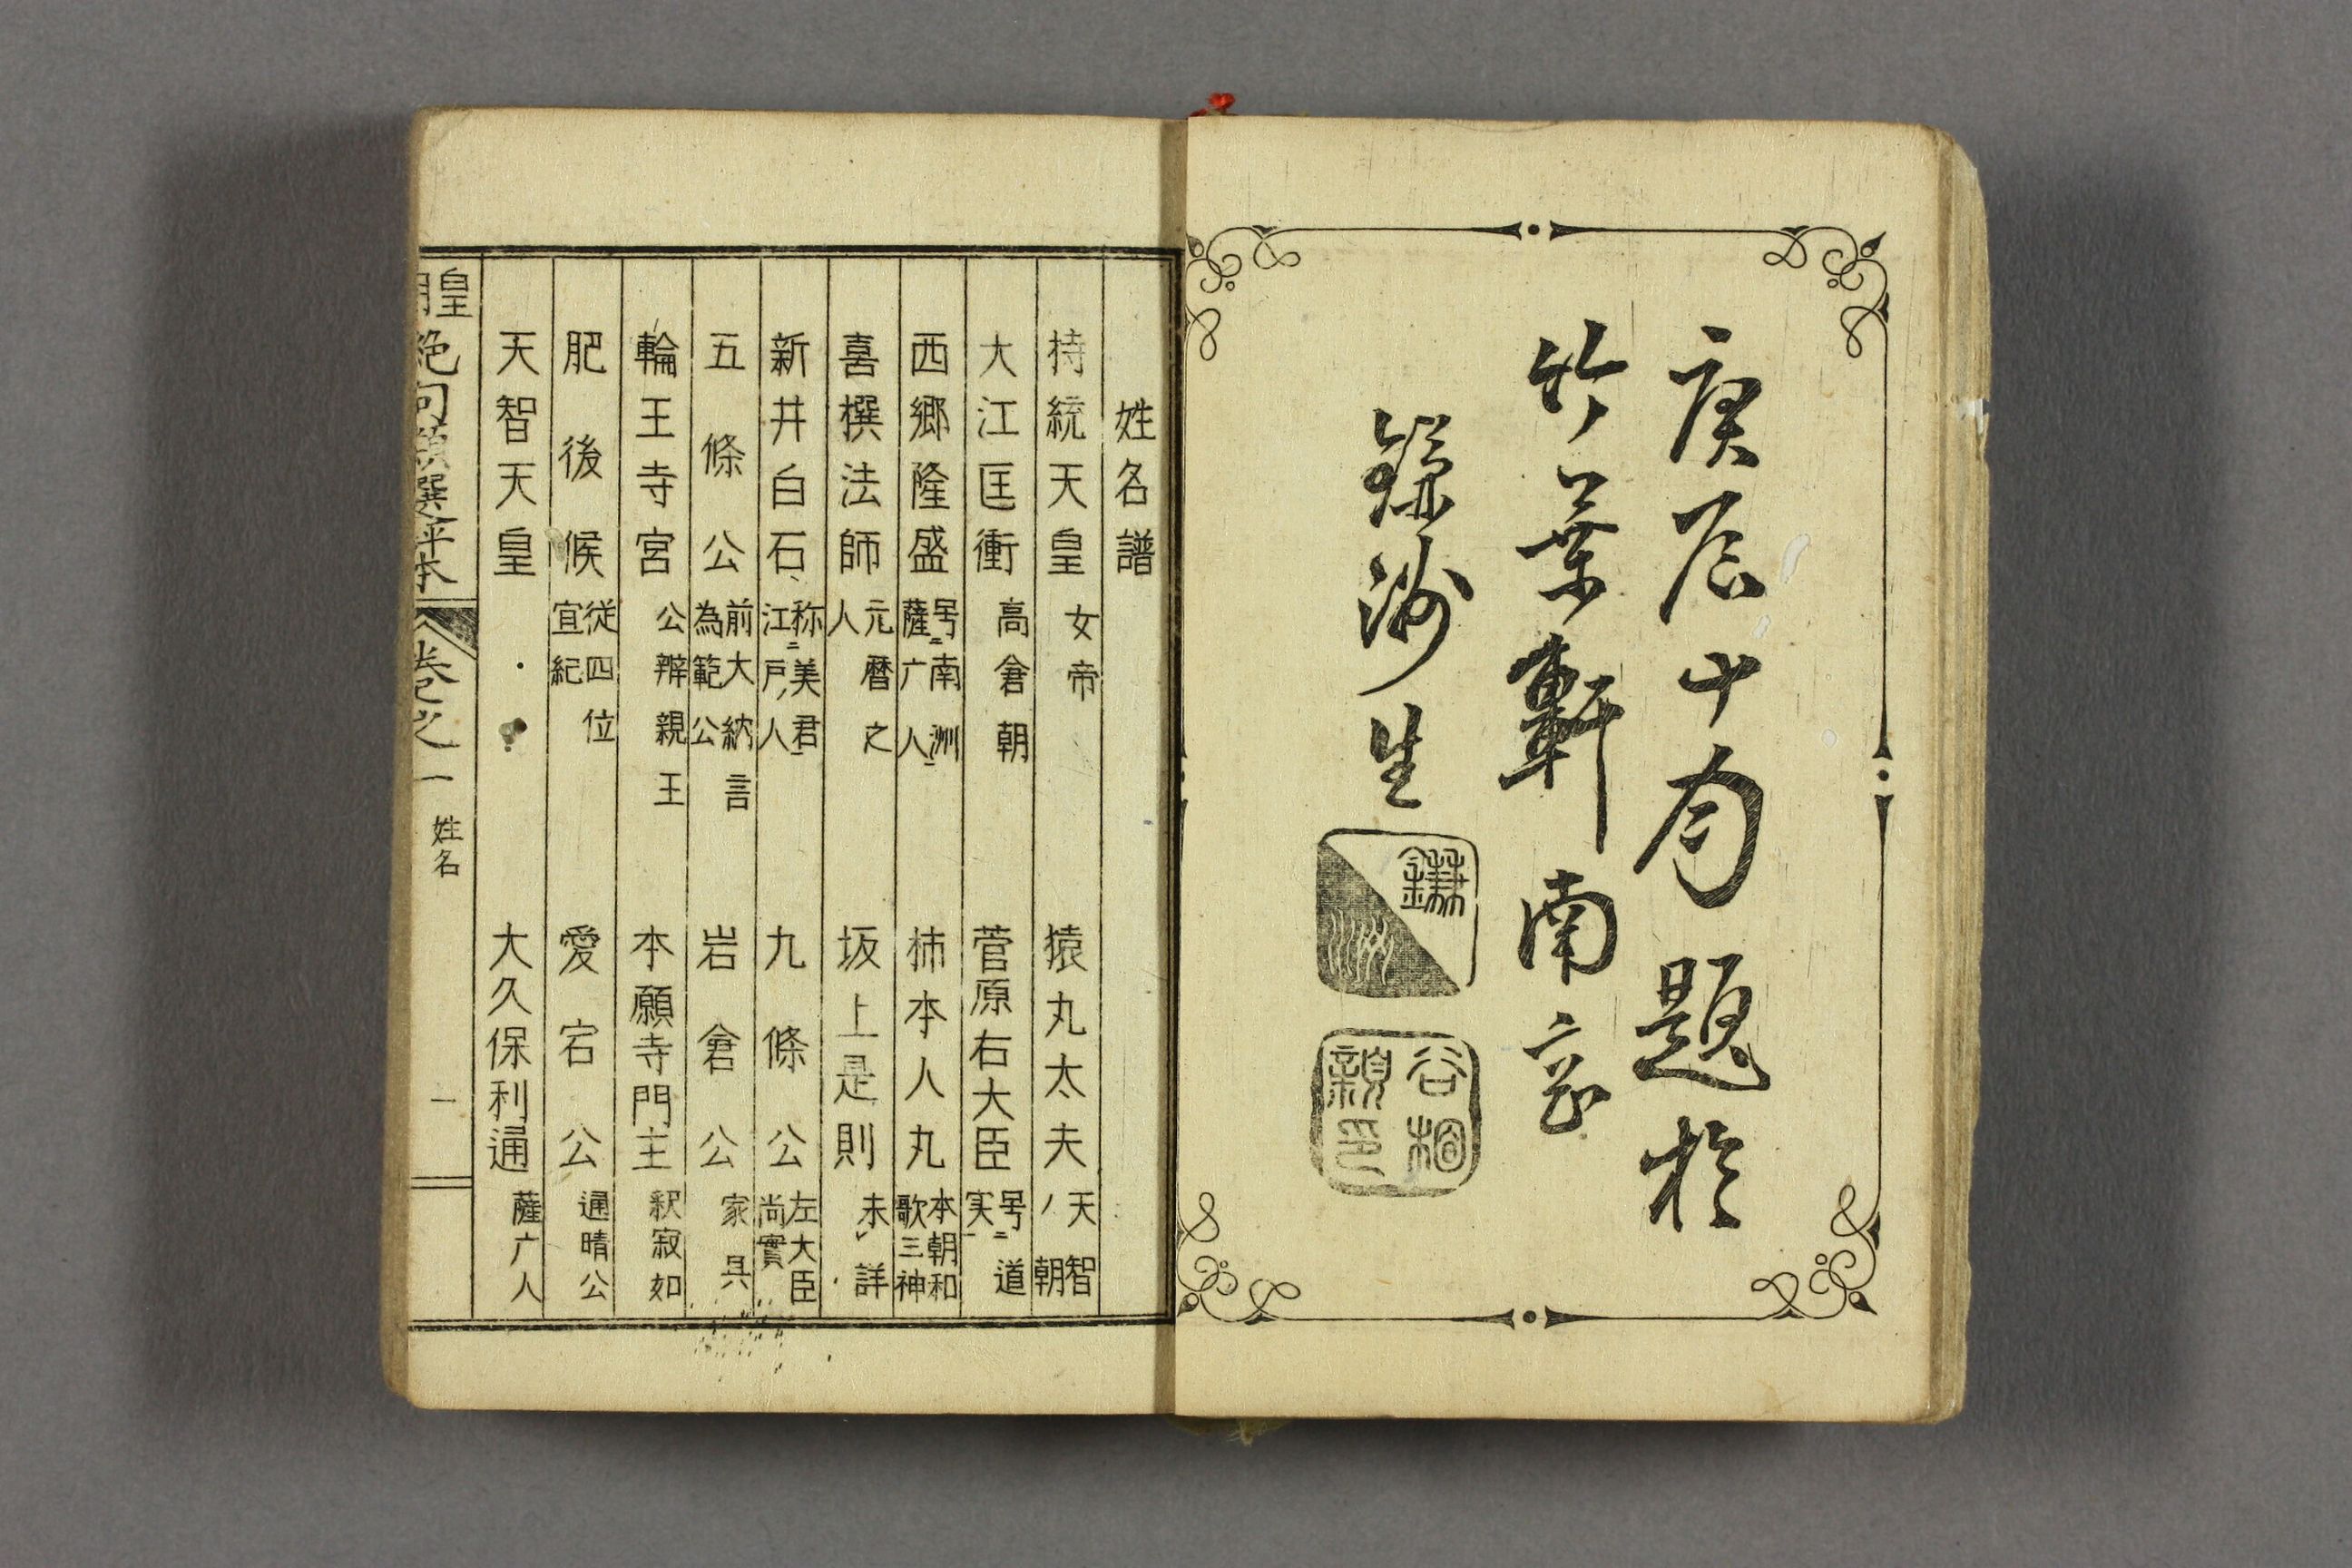 庚辰十月題於
竹葉軒南窓
鎌洲生
鎌洲
谷桐
親印
姓名譜
持統天皇 女帝 猿丸太夫 天智ノ朝
大江匡衡 高倉朝 菅原右大臣 号ニ道実一
西郷隆盛 号ニ南洲一薩广人 柿本人丸 本朝和歌三神
喜撰法師 元暦之人 坂上是則 未詳
新井白石 称ニ美君一江戸ノ人 九條公 左大臣尚實
五條公 前大納言為範公 岩倉公 家具
輪王寺宮 公辨親王 本願寺門主 釈寂如
肥後候 従四位宣紀 愛宕公 通晴公
天智天皇 大久保利通 薩广人
皇朝絶句類選評本 巻之一 姓名 一